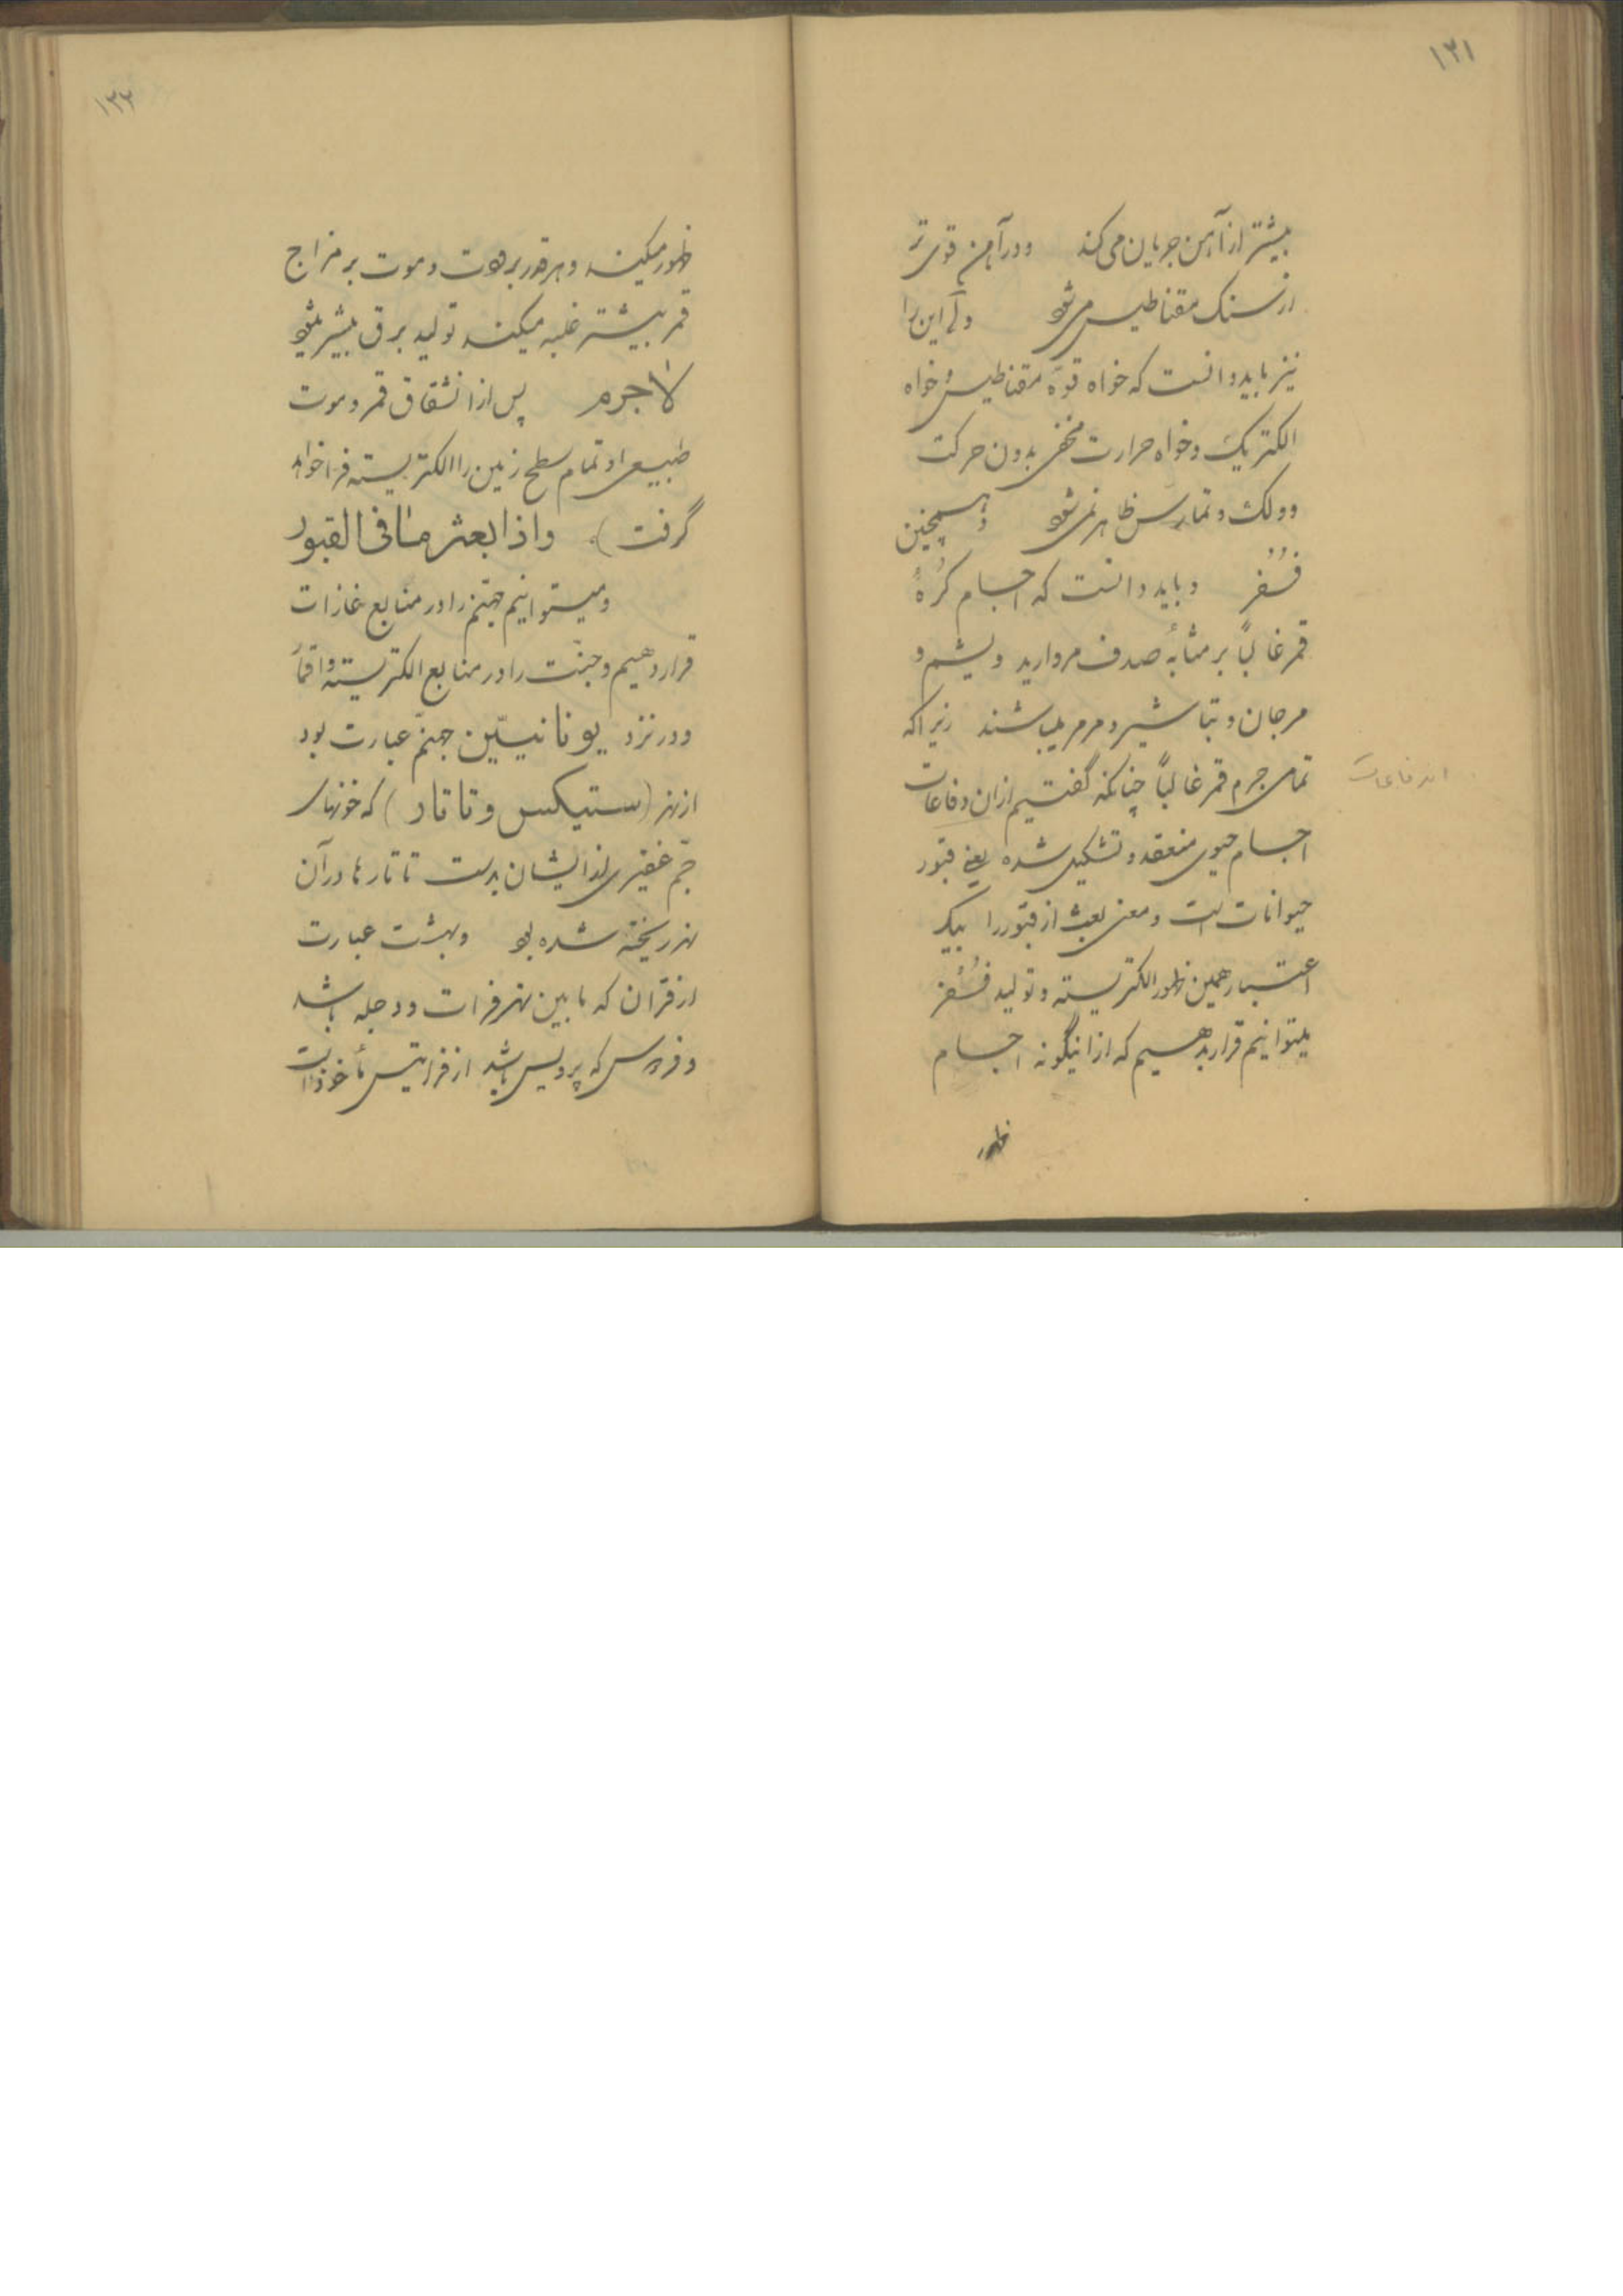 ١٣١
بیشتر از آهن جریان می کند ودر آهن قوی تر
از سنک مقناطیس می شود ولی این را
نیز باید دانست که خواه قوّه مقناطیس و خواه
الکتریک و خواه حرارت مخفی بدون حرکت
و دلک و تماس ظاهر نمی شود و همچنین
فُسفُر و باید دانست که اجسام کُرهٔ
قمر غالباً بر مثابهٔ صدف مروارید و یشم و
مرجان و تباشیر و مرمر میباشند زیرا که
تمامی جرم قمر غالباً چنانکه گفتیم از اندفاعات
اندفاعات
اجسام حیوی منعقد و تشکیل شده یعنی قبور
حیوانات است و معنی بعث از قبور را بیک
اعتبار همین ظهور الکتریسته و تولید فُسفُر
میتوانیم قرار بدهیم که از اینگونه اجسام
ظهور
١٣٢
ظهور میکند و هر قدر برودت و موت بر مزاج
قمر بیشتر غلبه میکند تولید برق بیشتر میشود
لاجرم پس از انشقاق قمر و موت
طبیعی او تمام سطح زمین را الکتریسته فرا خواهد
گرفت). واذا بعثر ما فی القبور
و میتوانیم جهنّم را در منابع غازات
قرار دهیم و جنّت را در منابع الکتریسته و
ودر نزد یونانیّین جهنّم عبارت بود
از نهر (ستیکس و تاتار) که خونهای
جمّ غفیری از ایشان بدست تاتارها در آن
نهر ریخته شده بود و بهشت عبارت
از قران که مابین نهر فرات و دجله باشد
و فردوس که پردیس باشد از فراتیس مأخوذ است